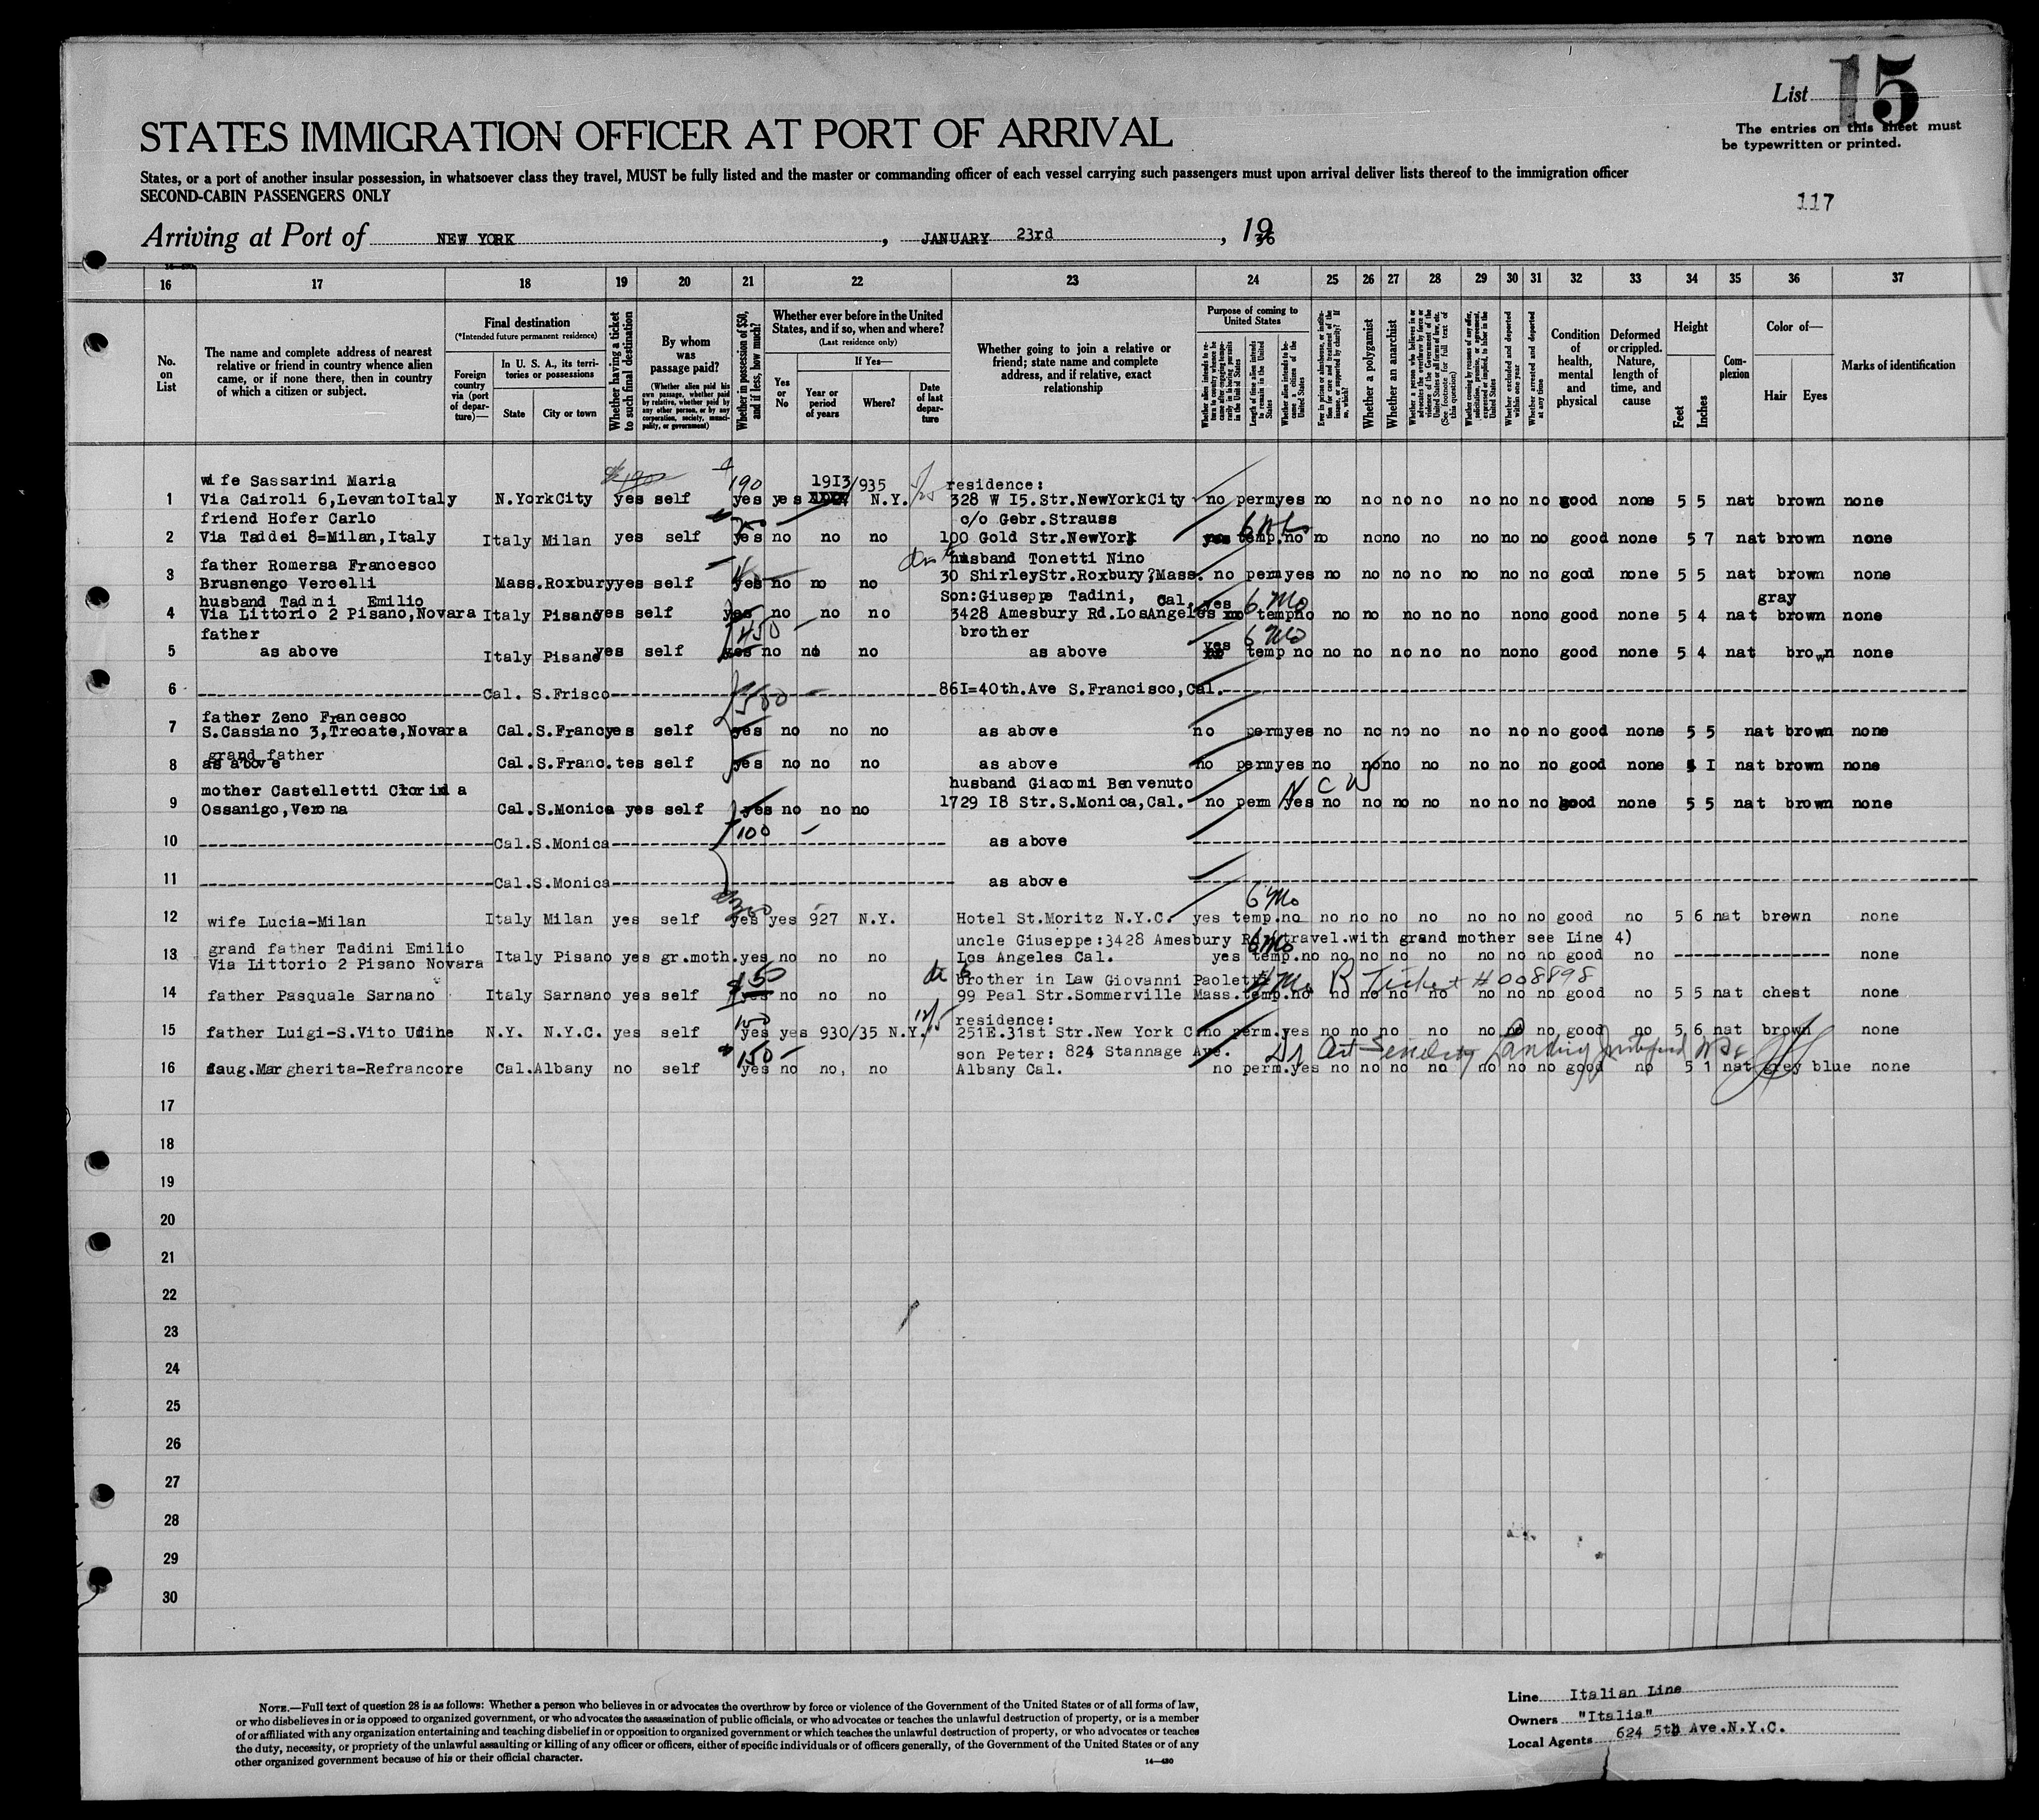 List 15
The entries on this sheet must
be typewritten or printed.
STATES IMMIGRATION OFFICER AT PORT OF ARRIVAL
States, or a port of another insular possession, in whatsoever class they travel, MUST be fully listed and the master or commanding officer of each vessel carrying such passengers must upon arrival deliver lists thereof to the immigration officer
SECOND-CABIN PASSENGERS ONLY
117
Arriving at Port of NEW YORK, JANUARY 23rd, 1936
16 17 18 19 20 21 22 23 24 25 26 27 28 29 30 31 32 33 34 35 36 37
No. on List
The name and complete address of nearest relative or friend in country whence alien came, or if none there, then in country of which a citizen or subject.
Final destination
(*Intended future permanent residence)
Foreign country via (port of departure)—
In U. S. A., its territories or possessions
State
City or town
Whether having a ticket to such final destination
By whom was passage paid?
(Whether alien paid his own passage, whether paid by relative, whether paid by any other person, or by any corporation, society, municipality, or government)
Whether in possession of $50, and if less, how much?
Whether ever before in the United States, and if so, when and where?
(Last residence only)
Yes or No
If Yes—
Year or period of years
Where?
Date of last departure
Whether going to join a relative or friend; state name and complete address, and if relative, exact relationship
Purpose of coming to United States
Length of time alien intends to remain in the United States
Whether alien intends to become a citizen of the United States
Whether a polygamist
Whether an anarchist
Whether excluded and deported within one year
Whether arrested and deported at any time
Condition of health, mental and physical
Deformed or crippled. Nature, length of time, and cause
Height
Feet
Inches
Complexion
Color of—
Hair
Eyes
Marks of identification
wife Sassarini Maria 1913 residence:
1 Via Cairoli 6,LevantoItaly N.YorkCity yes self 190 yes yes /935 N.Y. 328 W I5.Str.NewYorkCity no perm yes no no no no no no no good none 5 5 nat brown none
friend Hofer Carlo c/o Gebr.Strauss
2 Via Taddei 8=Milan,Italy Italy Milan yes self yes no no no 100 Gold Str.NewYork yes temp. no no no no no no no no good none 5 7 nat brown none
father Romersa Francesco husband Tonetti Nino
3 Brusnengo Vercelli Mass.Roxbury yes self yes no no no 30 ShirleyStr.Roxbury?Mass. no perm yes no no no no no no no good none 5 5 nat brown none
husband Tadini Emilio Son:Giuseppe Tadini, Cal. yes 6 Mo gray
4 Via Littorio 2 Pisano,Novara Italy Pisano yes self yes no no no 3428 Amesbury Rd.LosAngeles no temp no no no no no no no no good none 5 4 nat brown none
father 450 brother yes 6 Mo
5 as above Italy Pisano yes self yes no no no as above temp no no no no no no no no good none 5 4 nat brown none
6 Cal. S.Frisco 500 86I=40th.Ave S.Francisco,Cal.
father Zeno Francesco
7 S.Cassiano 3,Trecate,Novara Cal.S.Franc yes self yes no no no as above no perm yes no no no no no no no good none 5 5 nat brown none
grand father
8 as above Cal.S.Franc.tes self yes no no no as above no perm yes no no no no no no no good none I nat brown none
mother Castelletti Clorinda husband Giacomi Benvenuto N C W
9 Ossanigo,Verona Cal.S.Monica yes self yes no no no 1729 I8 Str.S.Monica,Cal. no perm yes no no no no no no no good none 5 5 nat brown none
10 Cal.S.Monica 100 as above
11 Cal.S.Monica as above
6 Mo
12 wife Lucia-Milan Italy Milan yes self yes yes 927 N.Y. Hotel St.Moritz N.Y.C. yes temp.no no no no no no no no good no 5 6 nat brown none
grand father Tadini Emilio uncle Giuseppe:3428 Amesbury Rd (travel.with grand mother see Line 4)
13 Via Littorio 2 Pisano Novara Italy Pisano yes gr.moth.yes no no no Los Angeles Cal. yes temp.no no no no no no no no good no none
$50 brother in Law Giovanni Paoletti R Ticket # 008898
14 father Pasquale Sarnano Italy Sarnano yes self yes no no no 99 Peal Str.Sommerville Mass.temp.no no no no no no no no good no 5 5 nat chest none
150 residence:
15 father Luigi-S.Vito Udine N.Y. N.Y.C. yes self yes yes 930/35 N.Y. 251E.31st Str.New York C. no perm.yes no no no no no no no good no 5 6 nat brown none
150 son Peter: 824 Stannage Ave.
16 daug.Margherita-Refrancore Cal.Albany no self yes no no, no Albany Cal. no perm.yes no no no no no no no good no 5 1 nat grey blue none
17
18
19
20
21
22
23
24
25
26
27
28
29
30
NOTE.—Full text of question 28 is as follows: Whether a person who believes in or advocates the overthrow by force or violence of the Government of the United States or of all forms of law,
or who disbelieves in or is opposed to organized government, or who advocates the assassination of public officials, or who advocates or teaches the unlawful destruction of property, or is a member
of or affiliated with any organization entertaining and teaching disbelief in or opposition to organized government or which teaches the unlawful destruction of property, or who advocates or teaches
the duty, necessity, or propriety of the unlawful assaulting or killing of any officer or officers, either of specific individuals or of officers generally, of the Government of the United States or of any
other organized government because of his or their official character.
14—430
Line Italian Line
Owners "Italia"
Local Agents 624 5th Ave.N.Y.C.